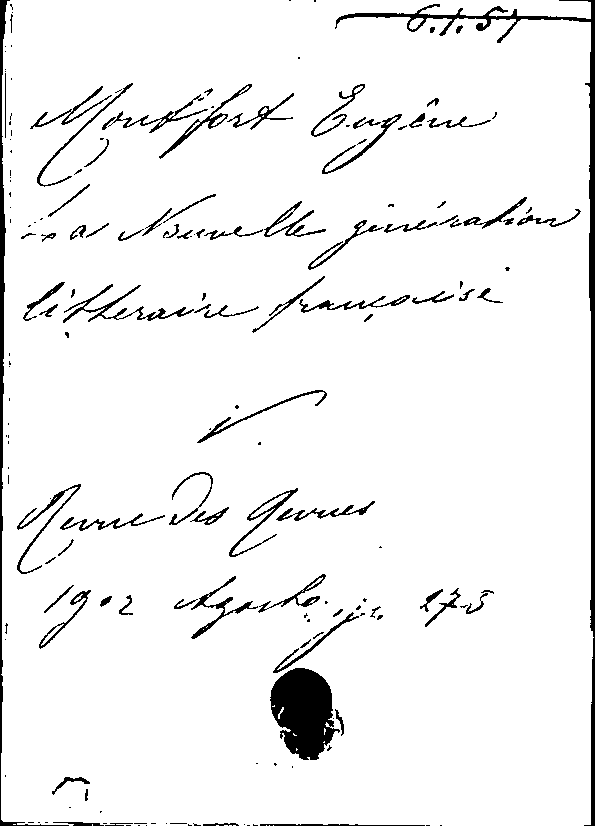 6.1.57
Montfort Eugène
La Nouvelle génération
littéraire française
v.
Revue des Revues
1902 Agosto, p. 273